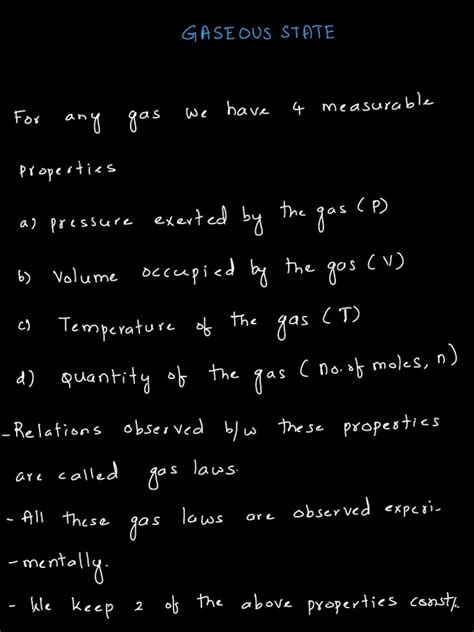 GASEOUS STATE
For any gas we have 4 measurable
properties
a) pressure exerted by the gas (P)
b) Volume occupied by the gas (V)
c) Temperature of the gas (T)
d) Quantity of the gas (no. of moles, n)
- Relations observed b/w these properties
are called gas laws.
- All these gas laws are observed experi-
- mentally.
- We keep 2 of the above properties const/.